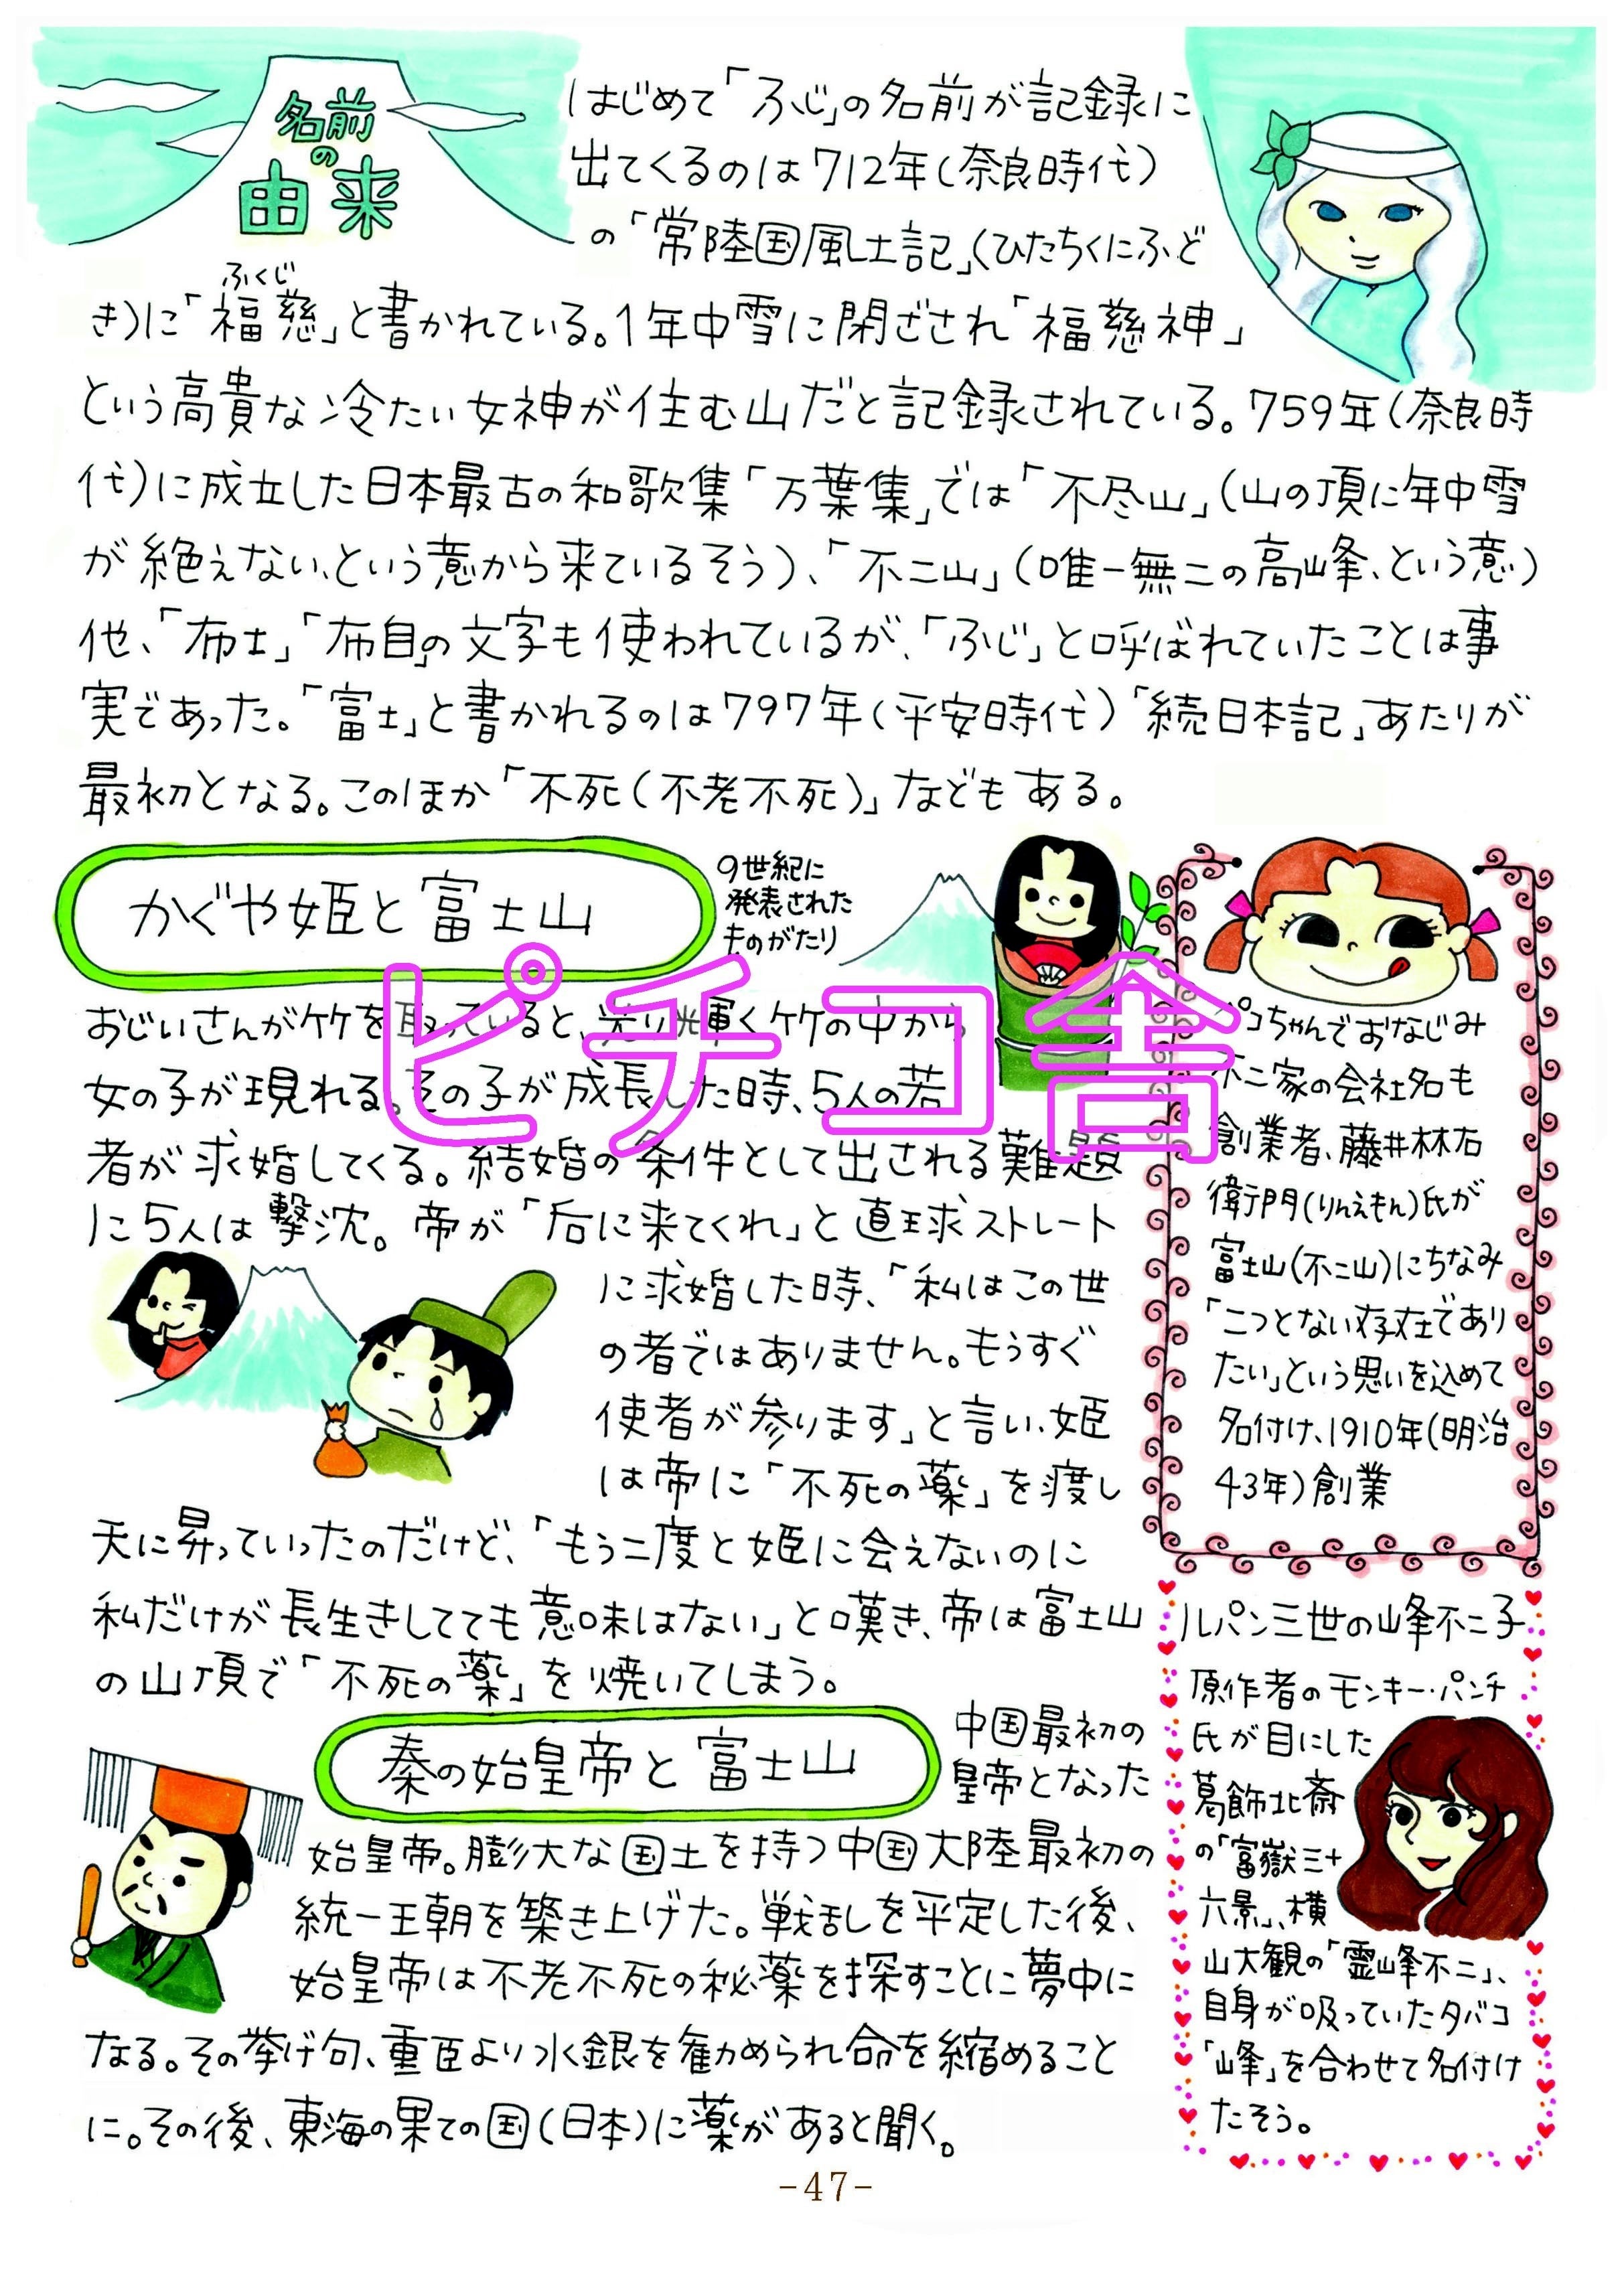 名前
の
由来
はじめて「ふじ」の名前が記録に
出てくるのは712年(奈良時代)
の「常陸国風土記」(ひたちくにふど
ふくじ
き)に「福慈」と書かれている。1年中雪に閉ざされ「福慈神」
という高貴な冷たい女神が住む山だと記録されている。759年(奈良時
代)に成立した日本最古の和歌集「万葉集」では「不尽山」(山の頂に年中雪
が絶えない、という意から来ているそう)、「不二山」(唯一無二の高峰、という意)
他、「布士」「布自」の文字も使われているが、「ふじ」と呼ばれていたことは事
実であった。「富士」と書かれるのは797年(平安時代)「続日本記」あたりが
最初となる。このほか「不死(不老不死)」などもある。
かぐや姫と富士山
9世紀に
発表された
ものがたり
おじいさんが竹を取っていると、光り輝く竹の中から
女の子が現れる。その子が成長した時、5人の若
者が求婚してくる。結婚の条件として出される難題
に5人は撃沈。帝が「后に来てくれ」と直球ストレート
に求婚した時、「私はこの世
の者ではありません。もうすぐ
使者が参ります」と言い、姫
は帝に「不死の薬」を渡し
天に昇っていったのだけど、「もう二度と姫に会えないのに
私だけが長生きしてても意味はない」と嘆き、帝は富士山
の山頂で「不死の薬」を焼いてしまう。
秦の始皇帝と富士山
中国最初の
皇帝となった
始皇帝。膨大な国土を持つ中国大陸最初の
統一王朝を築き上げた。戦乱を平定した後、
始皇帝は不老不死の秘薬を探すことに夢中に
なる。その挙げ句、重臣より水銀を勧められ命を縮めること
に。その後、東海の果ての国(日本)に薬があると聞く。
ペコちゃんでおなじみ
不二家の会社名も
創業者、藤井林右
衛門(りんえもん)氏が
富士山(不二山)にちなみ
「二つとない存在であり
たい」という思いを込めて
名付け、1910年(明治
43年)創業
ルパン三世の峰不二子
原作者のモンキー・パンチ
氏が目にした
葛飾北斎
の「富嶽三十
六景」、横
山大観の「霊峰不二」、
自身が吸っていたタバコ
「峰」を合わせて名付け
たそう。
ピチコ舎
-47-